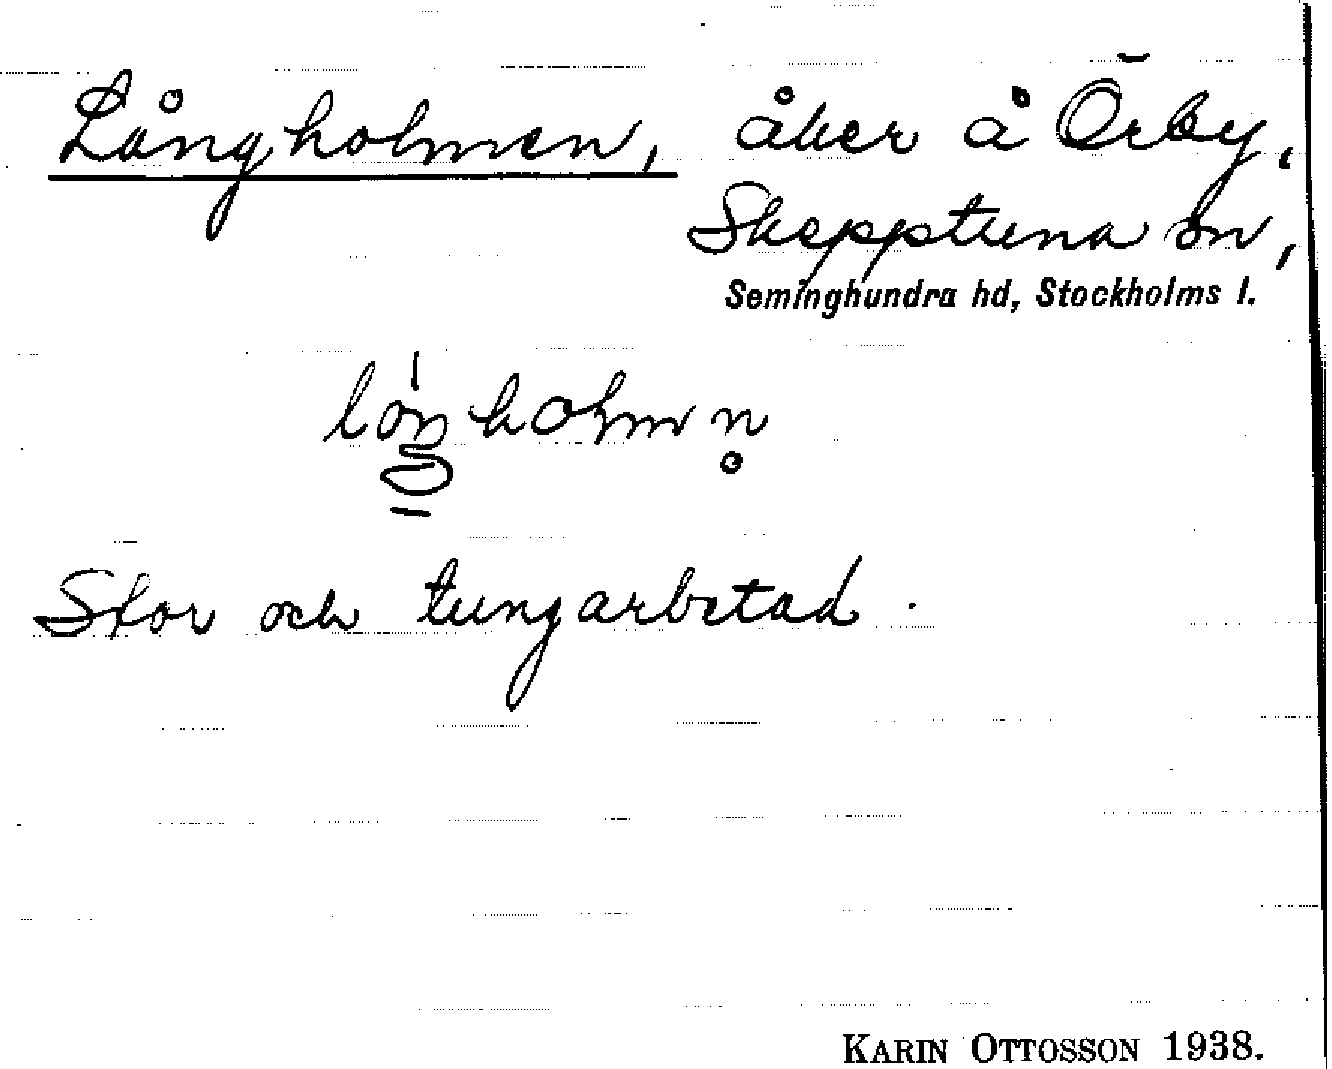 Långholmen, åker å Örby,
Skepptuna sn,
Seminghundra hd, Stockholms l.
Stor och tungarbetad.
KARIN OTTOSSON 1938.